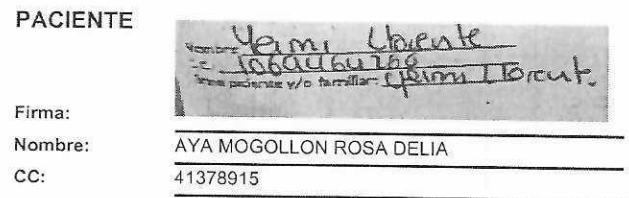 PACIENTE
Nombre: Yeimi Llorente
CC:
Firma paciente y/o familiar: Yeimi Llorente.
Firma:
Nombre: AYA MOGOLLON ROSA DELIA
CC: 41378915